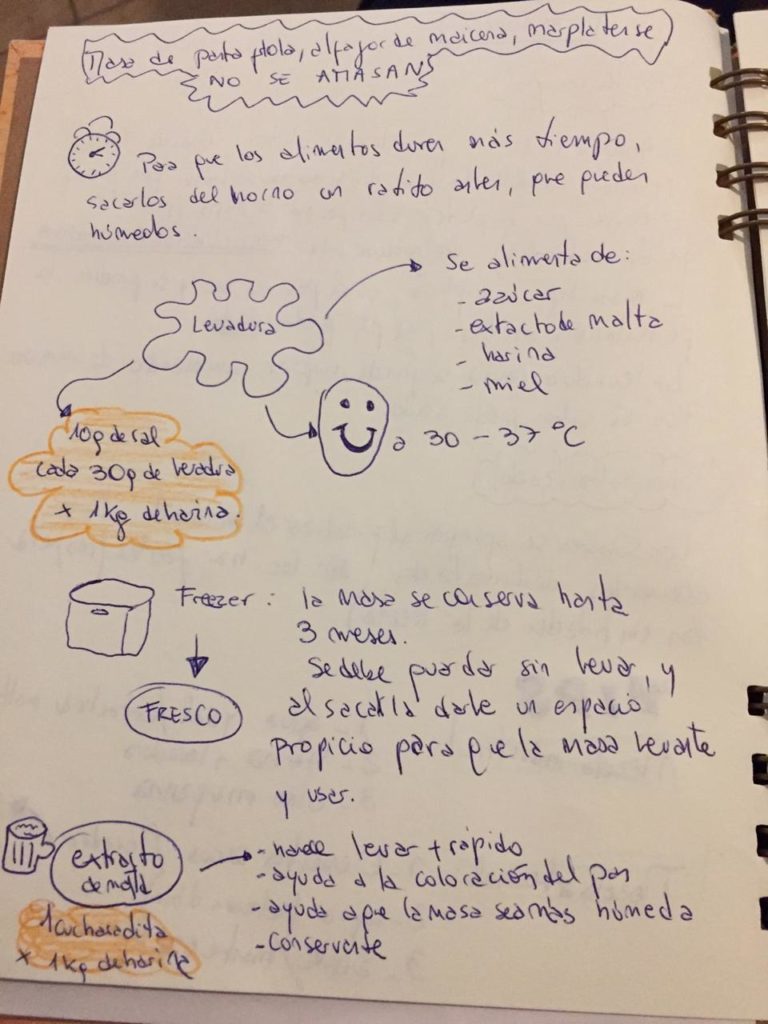 Masa de pasta flola, alfajor de maicena, marplatense
NO SE AMASAN
Para que los alimentos duren más tiempo,
sacarlos del horno un ratito antes, que queden
húmedos.
Se alimenta de:
- azúcar
- extracto de malta
- harina
- miel
Levadura
a 30 - 37 °C
10g de sal
cada 30g de levadura
x 1Kg de harina.
Freezer: la masa se conserva hasta
3 meses.
Se debe guardar sin levar, y
al sacarla darle un espacio
propicio para que la masa levante
y usar.
FRESCO
extracto
de malta
- hace levar + rápido
- ayuda a la coloración del pan
- ayuda a que la masa sea más húmeda
- conservante
1 cucharadita
x 1Kg de harina